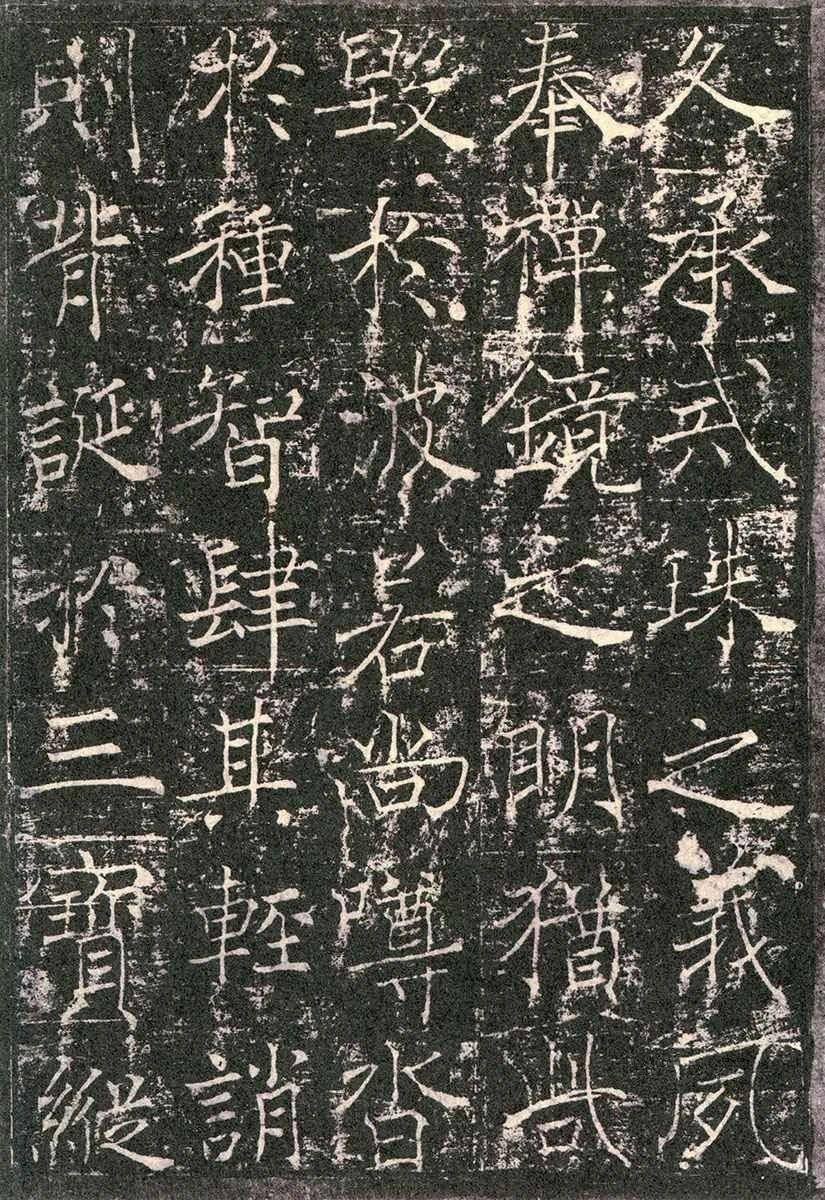 久承戒珠之義夙
奉禪鏡之明猶呰
毀於波若尚噂沓
於種智肆其輕誚
則背誕於三寶縱